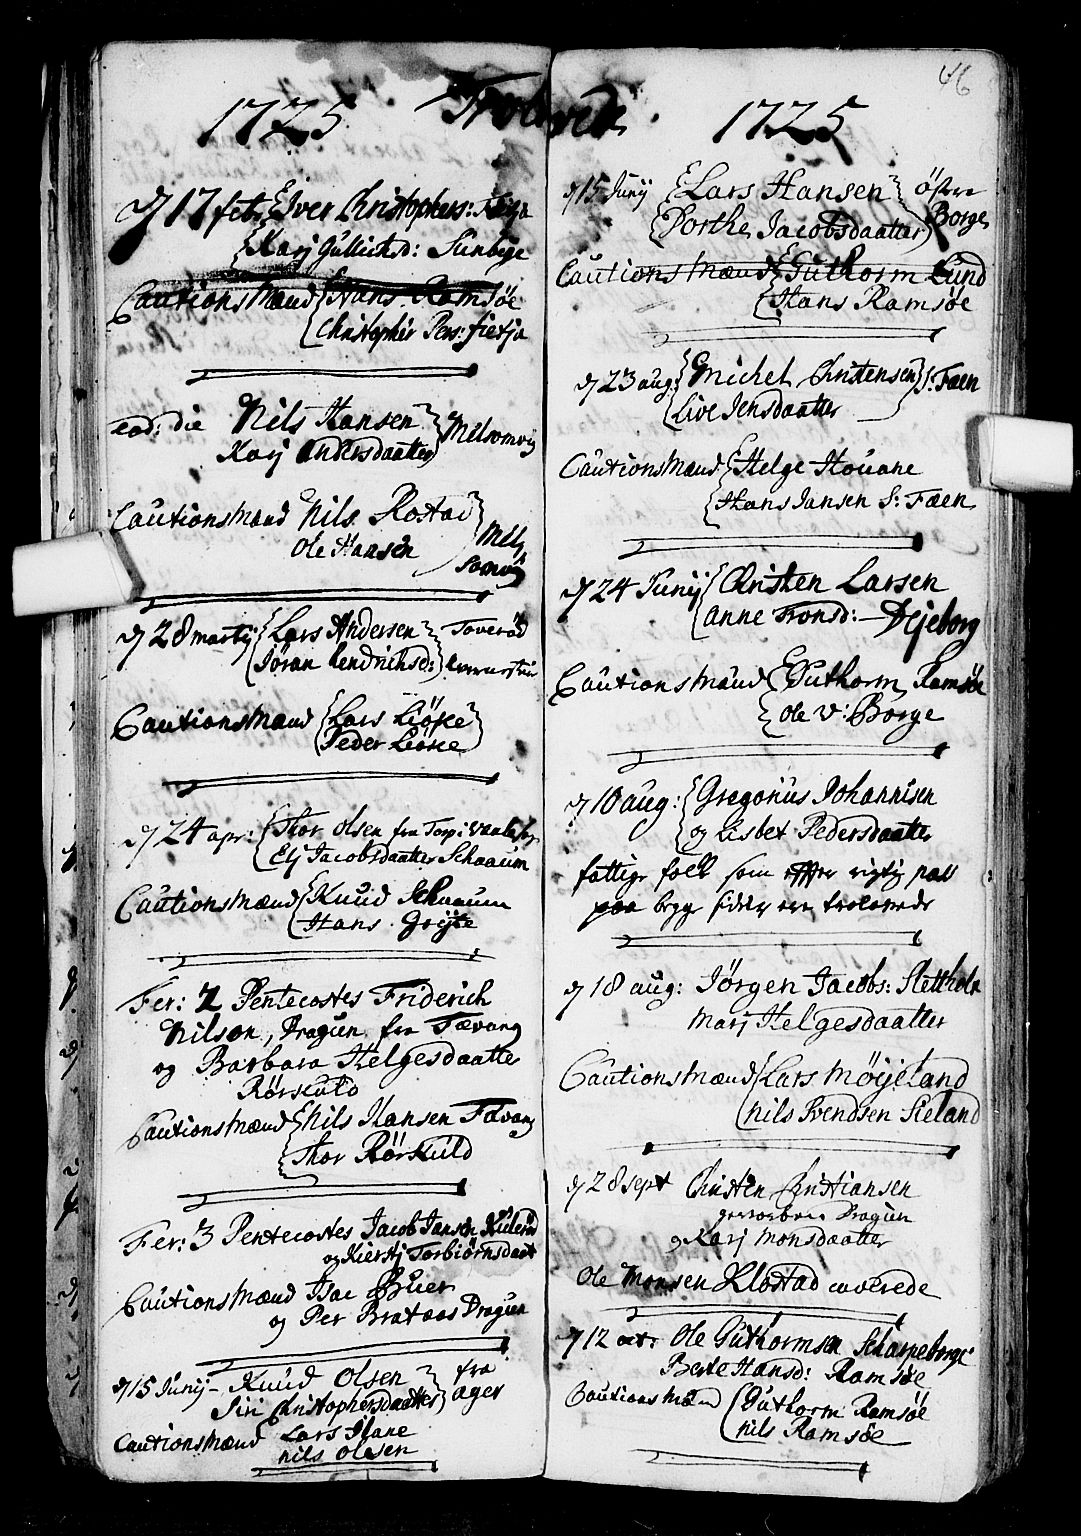 1725 Trolovede
d 17 febr Iver Christophers:
Karj Gullichsd: Sunbye
Cautions Mænd Hans Ramsøe
Christopher Pers: fietja
eod: die Nils Hansen
Karj Andersdaatter Melsomvig
Cautions Mænd Nils Rostad
Ole Hansen Mel,
somvig
d 28 martij Lars Andersen Toverød
Jøran hendrichsd:
Cautions Mænd Lars Liøske
Peder Liøske
d 24 apr: Thor Olsen fra Torp i
Elj Jacobsdaatter Schaaum
Cautions Mænd Knud Schaaum
Hans Gryte
Fer: 2 Pentecostes Friderich
Nilson, Dragun fra Tævang
og Barbara Helgesdaatter
Rørskuld
Cautions Mænd Nils Hansen Tævang
Thor Rørskuld
Fer: 3 Pentecostes Jacob Jansen
og Kierstj Torbiørnsdaat
Cautions Mænd Isac Bruer
og Per Brataas Dragun
d 15 Junij Knud Olsen fra
Siri Christophersdaatter ager
Cautions Mænd Lars Ilane
Nils Olsen
46
1725
d 15 Junij Lars Hansen Østre
Dorthe Jacobsdaatter Borge
Cautions Mænd Guthorm Lund
Hans Ramsøe
d 23 aug: Michel Christensen S: Fæen
Live Jensdaatter
Cautions Mænd Helge Houane
Hans Jansen S: Fæen
d 24 Junij Christen Larsen
Anne Tronsd: Dejeborg
Cautions Mænd Guthorm Ramsøe
Ole V: Borge
d 10 aug: Gregorius Johannisen
og Lisbet Pedersdaatter
fattige folk som efter rigtig pas
paa begge sider ere trolovede
d 18 aug: Jørgen Jacobs: Slettholt
Marj Helgesdaatter
Cautions Mænd Lars Møyeland
Nils Svendsen Sieland
d 28 sept Christen Christiansen
geworben Dragun
og Karj Monsdaatter
Ole Monsen Klostad caverede
d 12 oct: Ole Guthormsen Scharpeborge
Berte Hansd: Ramsøe
Cautions Mænd Guthorm Ramsøe
Nils Ramsøe